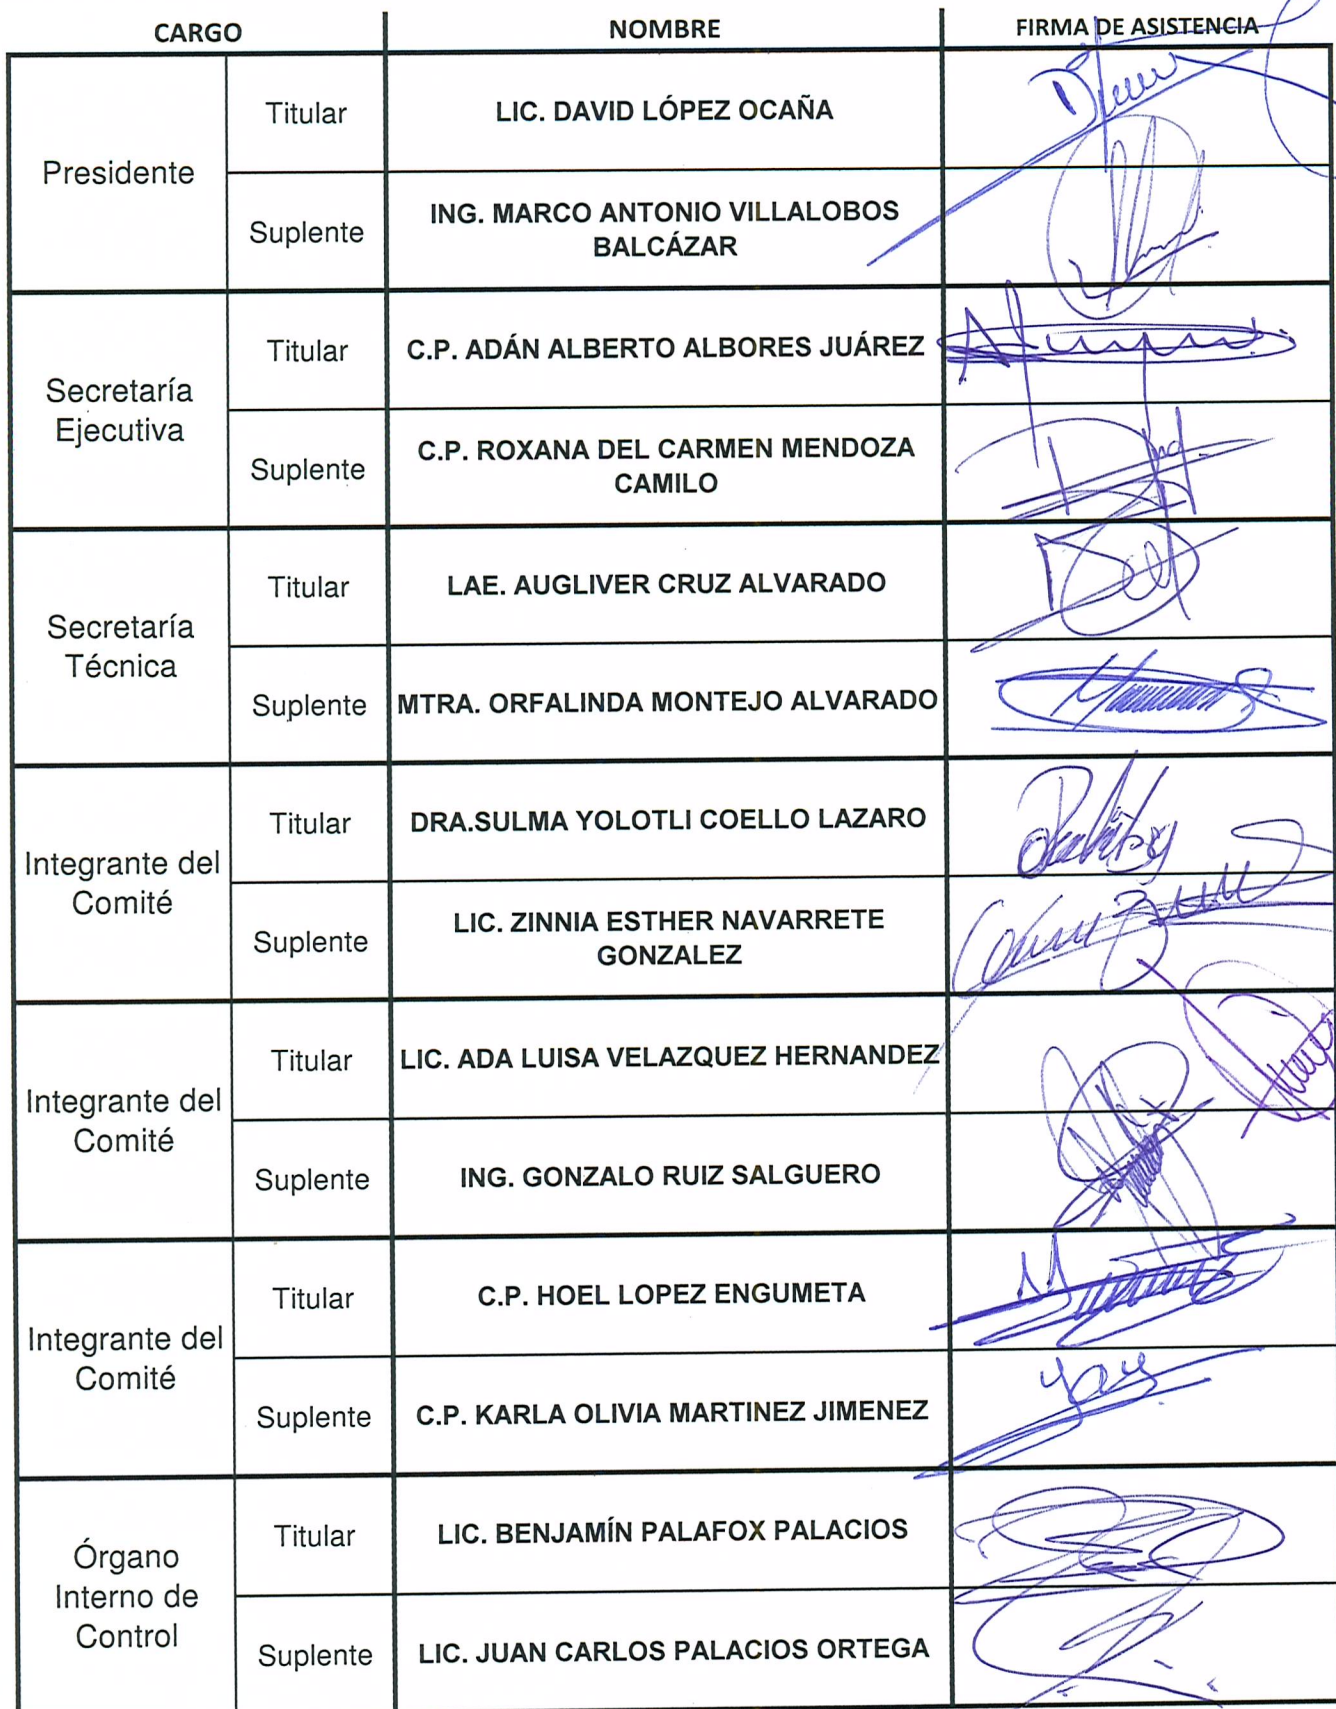 CARGO NOMBRE FIRMA DE ASISTENCIA
Presidente
Titular LIC. DAVID LÓPEZ OCAÑA
Suplente ING. MARCO ANTONIO VILLALOBOS
BALCÁZAR
Secretaría
Ejecutiva
Titular C.P. ADÁN ALBERTO ALBORES JUÁREZ
Suplente C.P. ROXANA DEL CARMEN MENDOZA
CAMILO
Secretaría
Técnica
Titular LAE. AUGLIVER CRUZ ALVARADO
Suplente MTRA. ORFALINDA MONTEJO ALVARADO
Integrante del
Comité
Titular DRA.SULMA YOLOTLI COELLO LAZARO
Suplente LIC. ZINNIA ESTHER NAVARRETE
GONZALEZ
Integrante del
Comité
Titular LIC. ADA LUISA VELAZQUEZ HERNANDEZ
Suplente ING. GONZALO RUIZ SALGUERO
Integrante del
Comité
Titular C.P. HOEL LOPEZ ENGUMETA
Suplente C.P. KARLA OLIVIA MARTINEZ JIMENEZ
Órgano
Interno de
Control
Titular LIC. BENJAMÍN PALAFOX PALACIOS
Suplente LIC. JUAN CARLOS PALACIOS ORTEGA